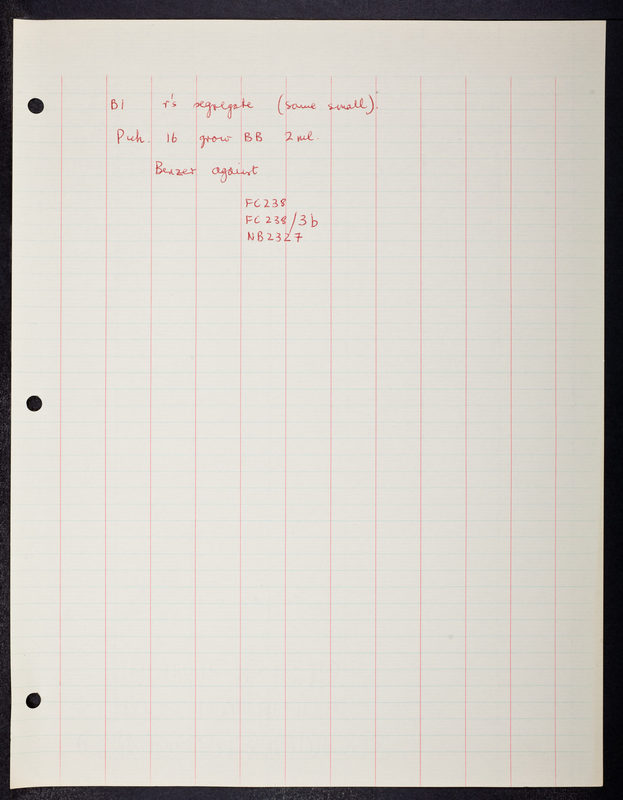 B1 r's segregate (some small).
Pick. 16 grow BB 2 ml.
Benzer against
FC238
FC 238/3b
NB2327